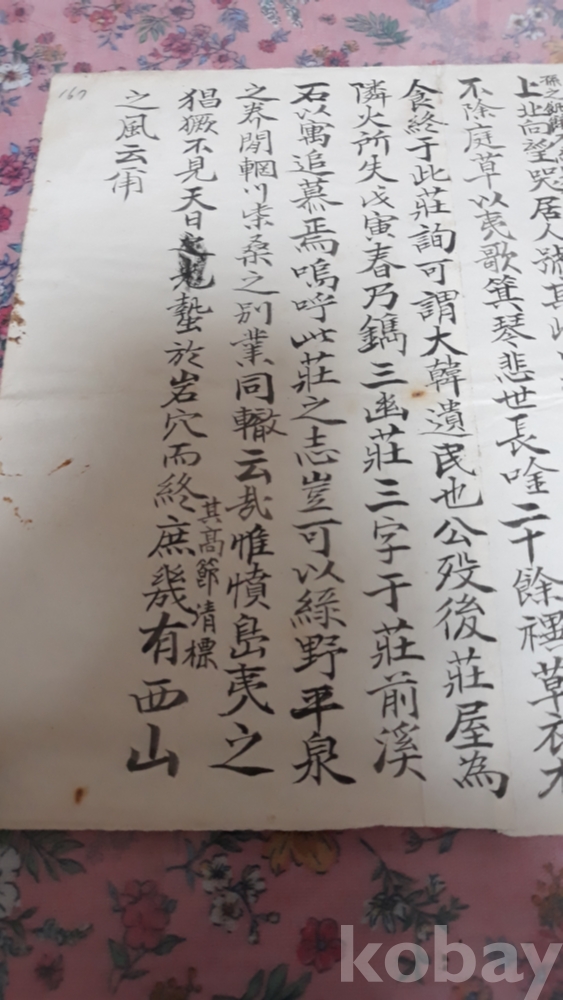 上北向望哭居人號其此
不除庭草以夷歌箕琴悲世長唫二十餘禩草衣木
食終于此莊詢可謂大韓遺民也公歿後莊屋為
隣火所失戊寅春乃鐫三幽莊三字于莊前溪
石以寓追慕焉嗚呼此莊之志豈可以綠野平泉
之养閑輞川柴桑之別業同轍云哉惟憤島夷之
猖獗不見天日蟄於岩穴而終庶幾有西山
其高節清標
之風云甫
167
kobay